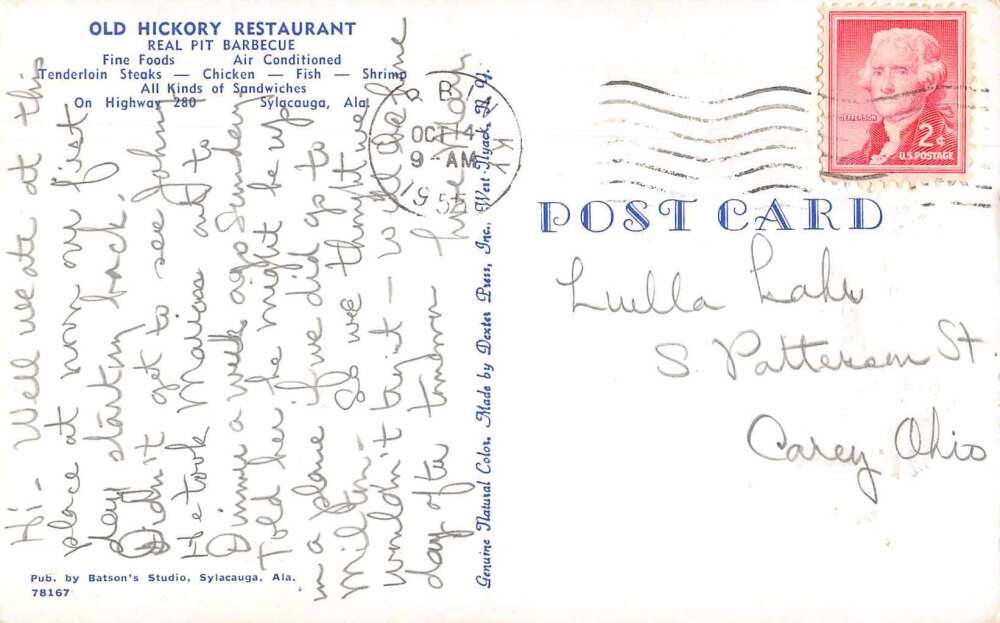 OLD HICKORY RESTAURANT
REAL PIT BARBECUE
Fine Foods Air Conditioned
Tenderloin Steaks — Chicken — Fish — Shrimp
All Kinds of Sandwiches
On Highway 280 Sylacauga, Ala.
Hi - Well we ate at this
place at noon on our first
day startin back.
Didn't get to see Johns
He took out to
Dinner a week ago Sunday.
Told her he might be up
in a plane if we did go to
so we thought we
wouldn't try it - will be home
day after
Pub. by Batson's Studio, Sylacauga, Ala.
78167
Genuine Natural Color, Made by Dexter Press, Inc., West Nyack, N. Y.
OCT 14
9 - AM
JEFFERSON
2¢
U.S. POSTAGE
POST CARD
Luella
S. Patterson St.
Carey, Ohio